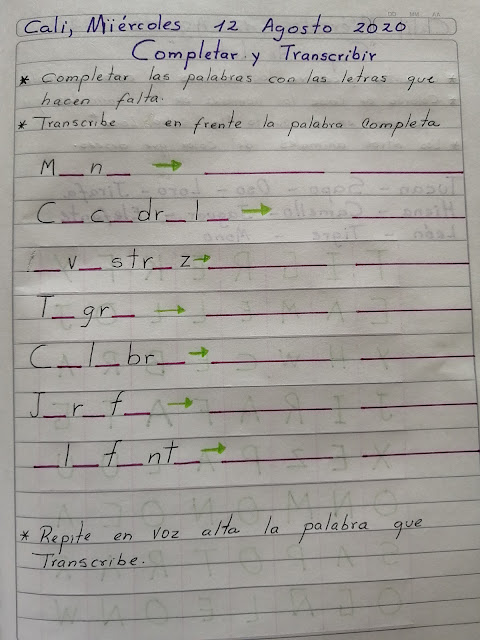 Cali, Miércoles 12 Agosto 2020
Completar y Transcribir
* Completar las palabras con las letras que
hacen falta.
* Transcribe en frente la palabra Completa
M _ n _ → ____ ____
C _ c _ dr _ l _ → ____ ____
_ v _ str _ z → ____ ____
T _ gr _ → ____ ____
C _ l _ br _ → ____ ____
J _ r _ f _ → ____ ____
_ l _ f _ nt _ → ____ ____
* Repite en voz alta la palabra que
Transcribe.